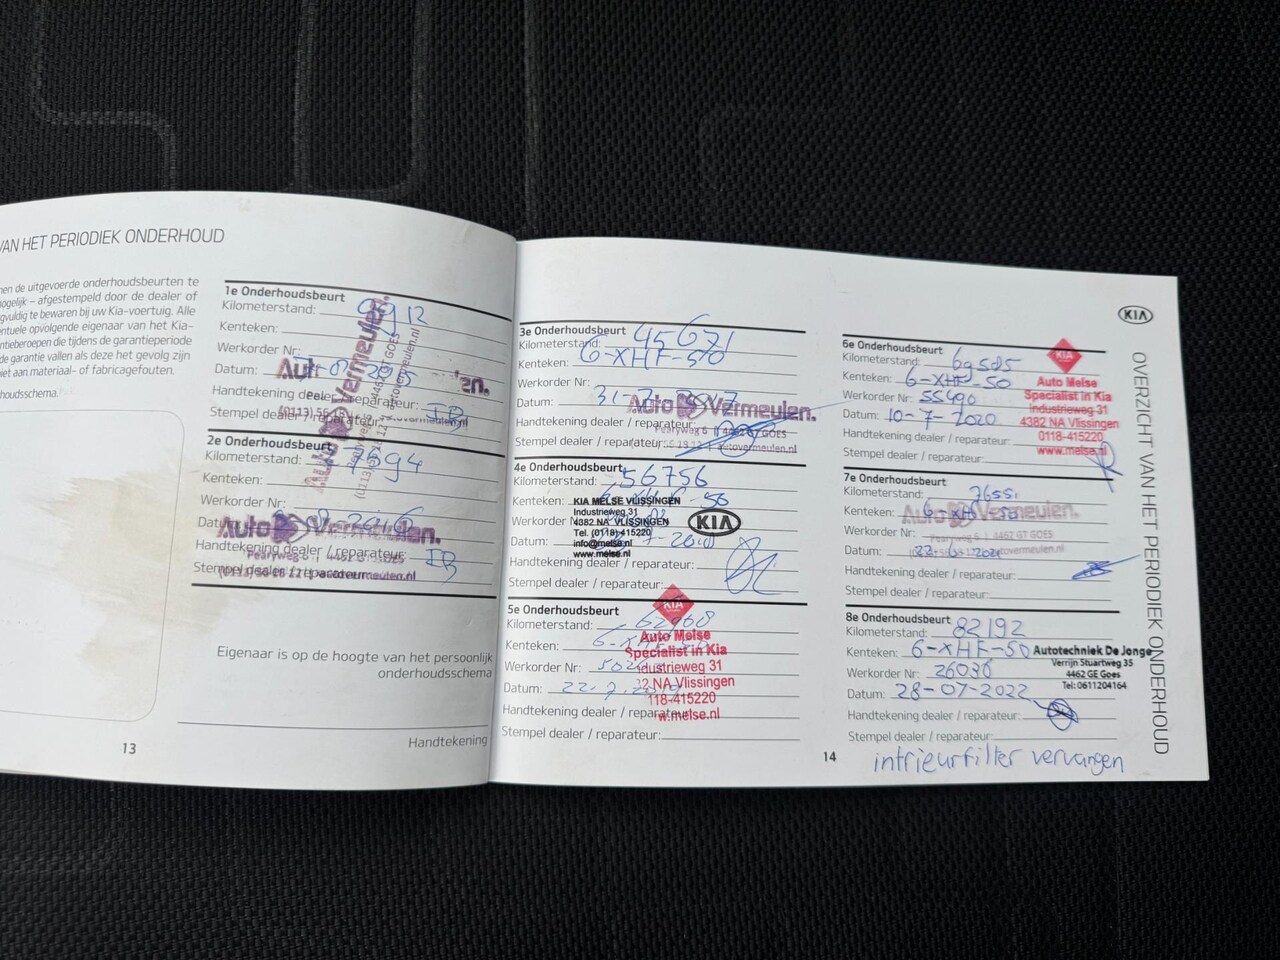 VAN HET PERIODIEK ONDERHOUD
nen de uitgevoerde onderhoudsbeurten te
ogelijk – afgestempeld door de dealer of
gvuldig te bewaren bij uw Kia-voertuig. Alle
entuele opvolgende eigenaar van het Kia-
ntieberoepen die tijdens de garantieperiode
de garantie vallen als deze het gevolg zijn
iet aan materiaal- of fabricagefouten.
houdsschema.
1e Onderhoudsbeurt
Kilometerstand: 9912
Kenteken:
Werkorder Nr:
Datum:
Handtekening dealer / reparateur: IB
Stempel dealer / reparateur:
Auto Vermeulen.
2e Onderhoudsbeurt
Kilometerstand:
Kenteken:
Werkorder Nr:
Datum:
Auto Vermeulen.
Pearyweg 6 | 4462 GT GOES
Handtekening dealer / reparateur: IB
Stempel dealer / reparateur:
autovermeulen.nl
Eigenaar is op de hoogte van het persoonlijk
onderhoudsschema
Handtekening
13
3e Onderhoudsbeurt
Kilometerstand: 45671
Kenteken: 6-XHF-50
Werkorder Nr:
Datum: 31-7-2017
Auto Vermeulen.
Pearyweg 6 | 4462 GT GOES
Handtekening dealer / reparateur:
Stempel dealer / reparateur:
autovermeulen.nl
4e Onderhoudsbeurt
Kilometerstand: 56756
Kenteken:
Werkorder Nr:
Datum:
KIA MELSE VLISSINGEN
Industrieweg 31
4382 NA VLISSINGEN
Tel. (0118) 415220
info@melse.nl
www.melse.nl
KIA
Handtekening dealer / reparateur:
Stempel dealer / reparateur:
5e Onderhoudsbeurt
Kilometerstand: 62968
Kenteken:
Werkorder Nr:
Datum:
KIA
Auto Melse
Specialist in Kia
Industrieweg 31
NA Vlissingen
118-415220
w.melse.nl
Handtekening dealer / reparateur:
Stempel dealer / reparateur:
14
KIA
6e Onderhoudsbeurt
Kilometerstand: 69585
Kenteken: 6-XHF-50
Werkorder Nr: 55490
Datum: 10-7-2020
Handtekening dealer / reparateur:
Stempel dealer / reparateur:
KIA
Auto Melse
Specialist in Kia
Industrieweg 31
4382 NA Vlissingen
0118-415220
www.melse.nl
7e Onderhoudsbeurt
Kilometerstand:
Kenteken: 6-XHF-50
Auto Vermeulen.
Werkorder Nr:
Pearyweg 6 | 4462 GT GOES
Datum:
autovermeulen.nl
Handtekening dealer / reparateur:
Stempel dealer / reparateur:
8e Onderhoudsbeurt
Kilometerstand: 82192
Kenteken: 6-XHF-50
Werkorder Nr: 26036
Datum: 28-07-2022
Autotechniek De Jonge
Verrijn Stuartweg 35
4462 GE Goes
Tel: 0611204164
Handtekening dealer / reparateur:
Stempel dealer / reparateur:
intrieurfilter vervangen
OVERZICHT VAN HET PERIODIEK ONDERHOUD